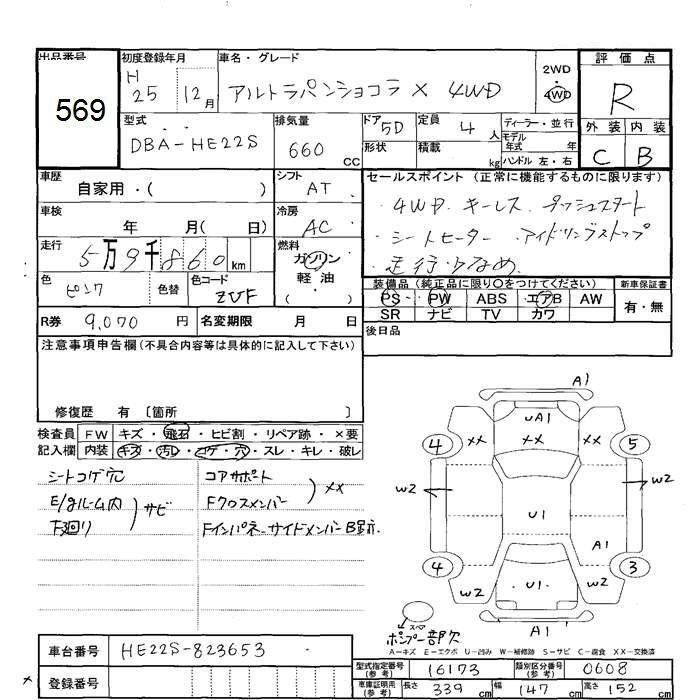 出品番号
569
初度登録年月
H
25 12月
車名・グレード
アルトラパンショコラ X 4WD
2WD
4WD
評価点
R
外装 内装
C B
型式
DBA-HE22S
排気量
660 cc
ドア 5D
形状
定員 4 人
積載 kg
ディーラー・並行
モデル年式 年
ハンドル 左・右
車歴
自家用・( )
シフト
AT
車検
年 月( 日)
冷房
AC
走行
5万9千860 km
燃料
ガソリン
軽油
・( )
色
ピンク
色替
色コード
ZVF
セールスポイント(正常に機能するものに限ります)
・4WD キーレス プッシュスタート
・シートヒーター アイドリングストップ
・走行少なめ
装備品(純正品に限り○をつけてください)
PS PW ABS エアB AW
SR ナビ TV カワ
新車保証書
有・無
R券 9,070 円
名変期限 月 日
後日品
注意事項申告欄(不具合内容等は具体的に記入して下さい)
修復歴 有 〔箇所 〕
検査員記入欄
FW キズ・飛石・ヒビ割・リペア跡・×要
内装 キズ・汚レ・コゲ・穴・スレ・キレ・破レ
シートコゲ穴
E/gルーム内
下廻り
サビ
コアサポート
Fクロスメンバー
XX
FインパネーサイドメンバーB
A1
UA1
XX XX XX
4 5
W2 W2
U1
A1
4 3
W2 U1 W2
A1
スペア
ポンプ一部欠
A－キズ E－エクボ U－凹み W－補修跡 S－サビ C－腐食 XX－交換済
車台番号 HE22S-823653
登録番号
型式指定番号(参考) 16173
類別区分番号(参考) 0608
車庫証明用(参考) 長さ 339 cm 幅 147 cm 高さ 152 cm